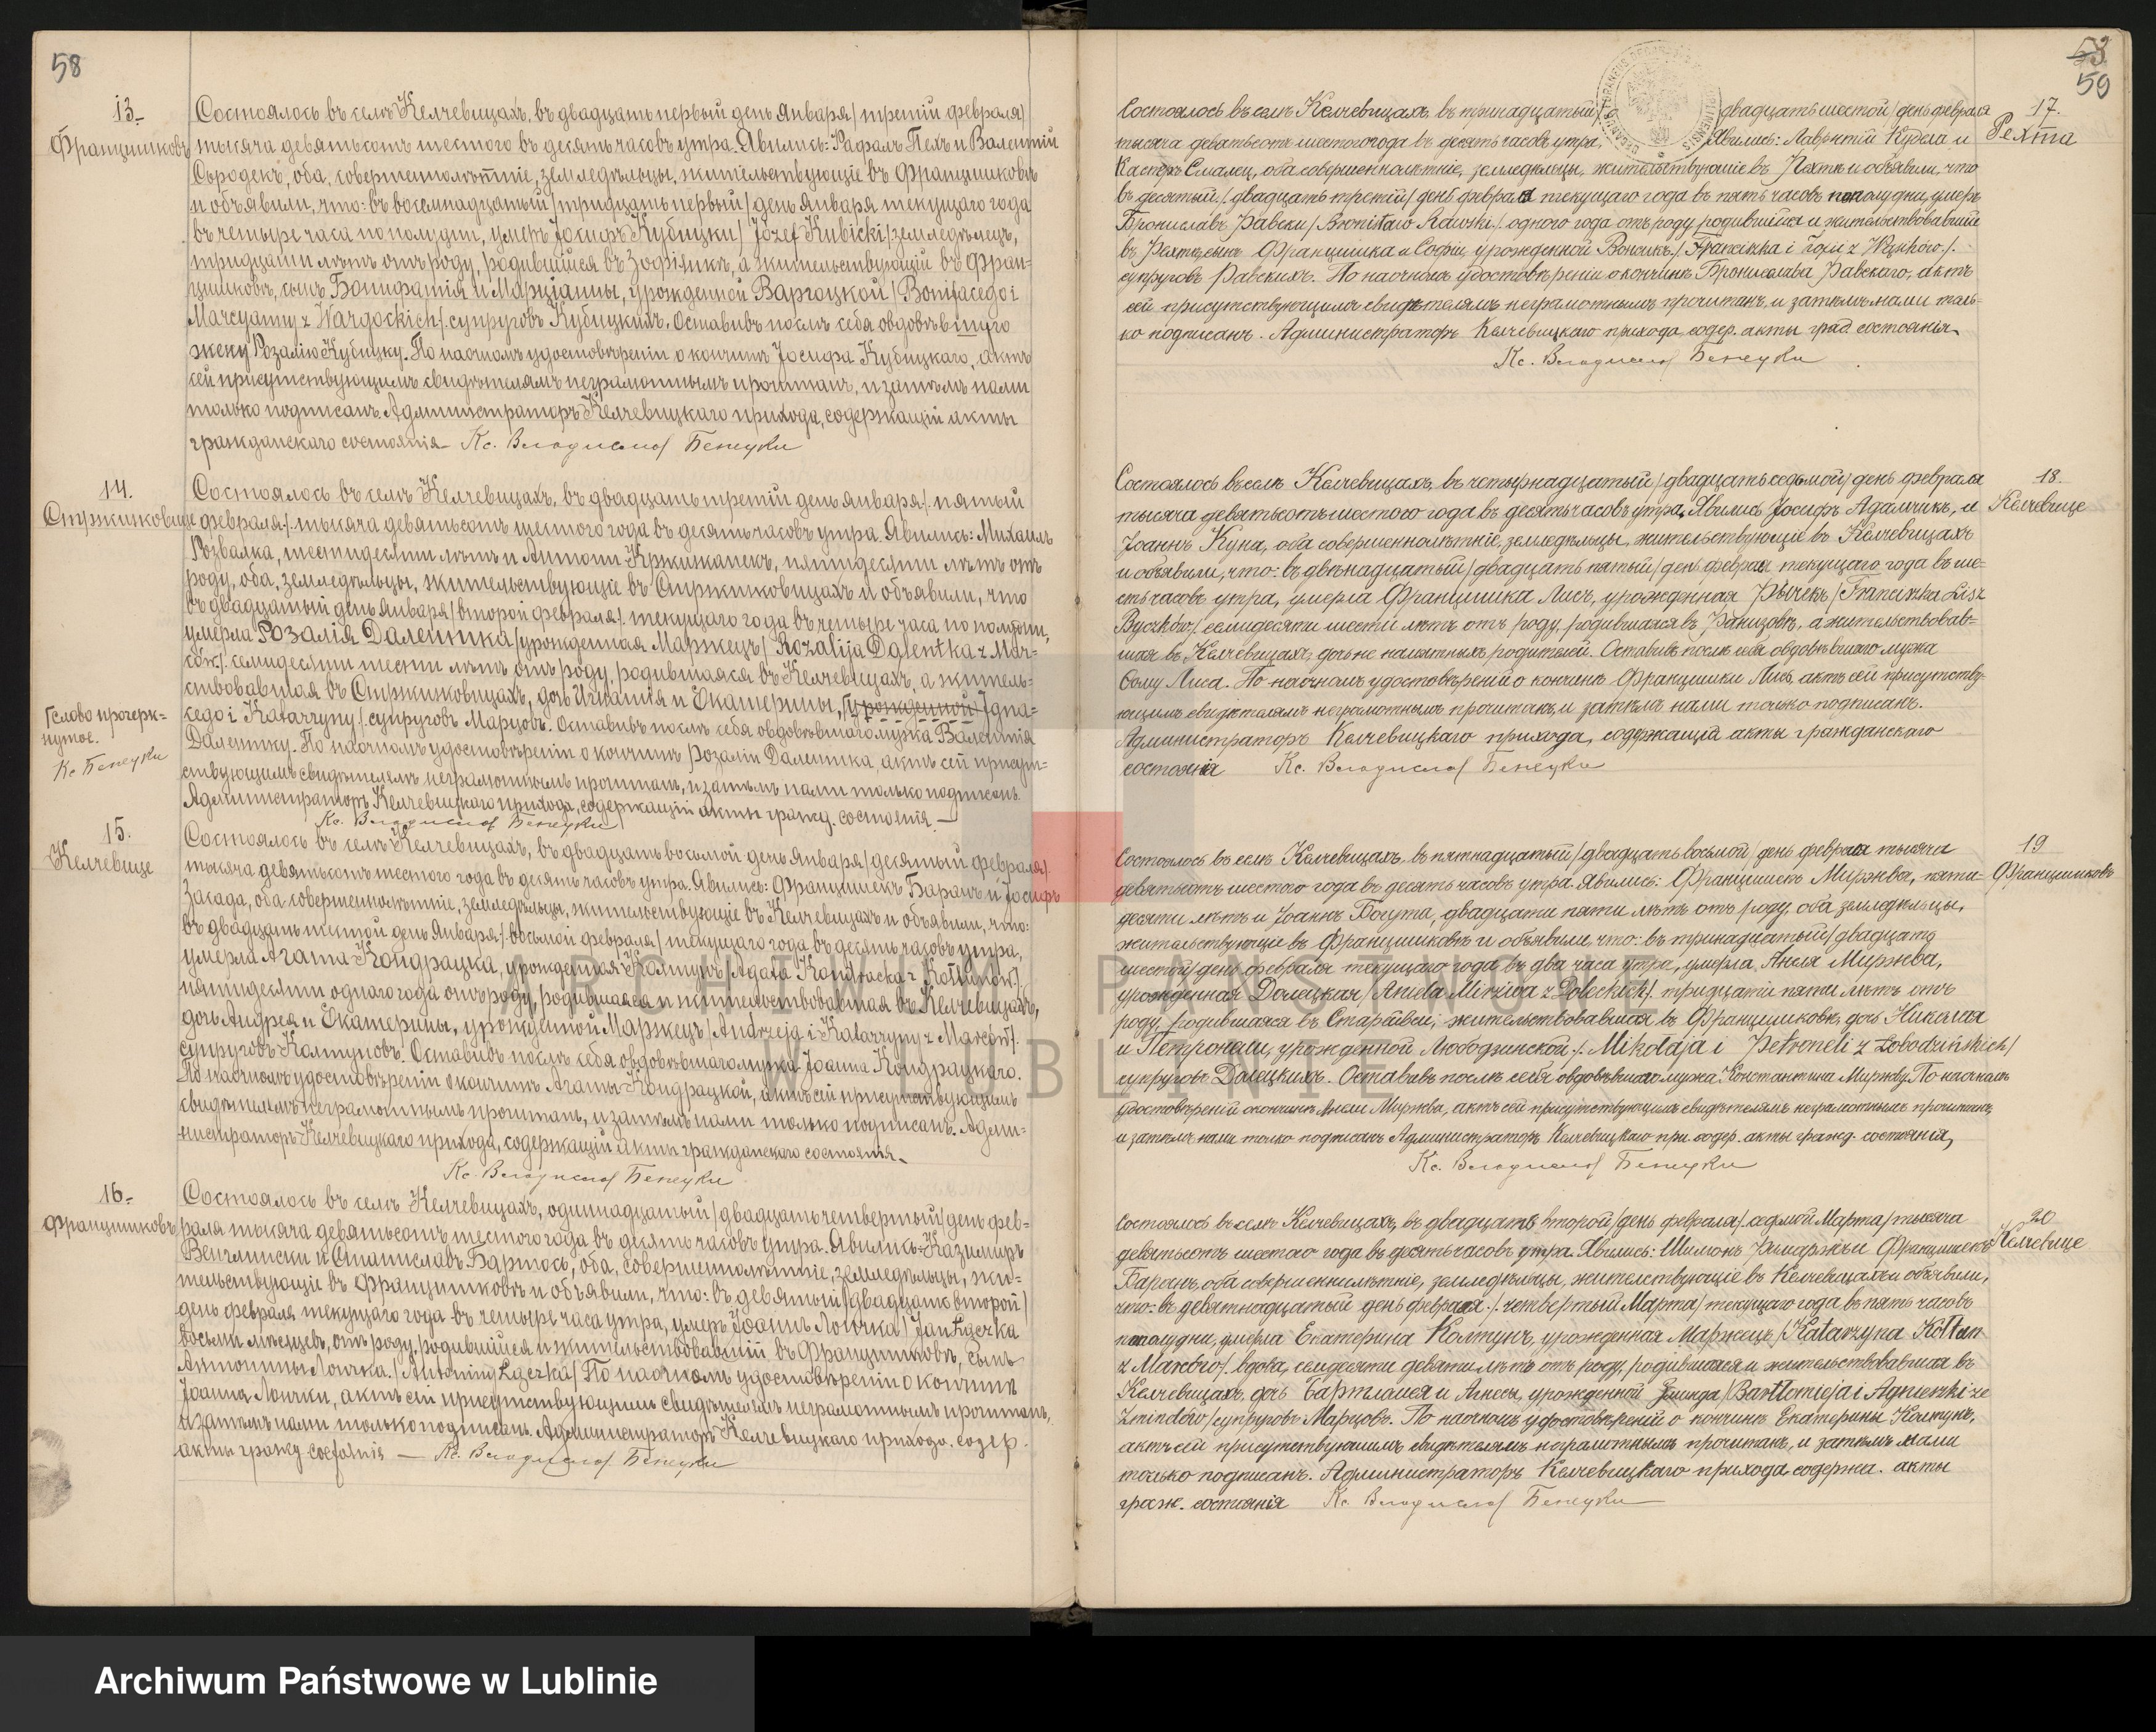 58
13.
Францишковъ
Состоялось въ селѣ Келчевицахъ, въ двадцать первый день Января / третій февраля /
тысяча девятьсотъ шестого въ десять часовъ утра. Явились: Рафалъ Пехъ и Валентій
Сѣродекъ, оба, совершеннолѣтніе, земледѣльцы, жительствующіе въ Францишковѣ
и объявили, что: въ восемнадцатый / тридцать первый / день января текущаго года
въ четыре часа по полудни, умеръ Іосифъ Кубицки / Józef Kubicki / земледѣлецъ,
тридцати лѣтъ отъ роду, родившійся въ Зофіинкѣ, а жительствующій въ Фран-
цишковѣ, сынъ Бонифатія и Марціанны, урожденной Варгоцкой / Bonifacego i
Marcyanny z Wargockich /. супруговъ Кубицкихъ. Оставивъ послѣ себя овдовѣвшую
жену Розалію Кубицку. По настномъ удостовѣреніи о кончинѣ Іосифа Кубицкаго, актъ
сей присутствующимъ свидѣтелямъ неграмотнымъ прочитанъ, и затѣмъ нами
только подписанъ. Администраторъ Келчевицкаго прихода, содержащій акты
гражданскаго состоянія Кс. Владиславъ
14.
Стржижковице
Состоялось въ селѣ Келчевицахъ, въ двадцать третій день января /. пятый
февраля /. тысяча девятьсотъ шестого года въ десять часовъ утра. Явились: Михаилъ
Розвалка, шестидесяти лѣтъ и Антони Кржижанекъ, пятидесяти лѣтъ отъ
роду, оба, земледѣльцы, жительствующіе въ Стржижковицахъ и объявили, что
въ двадцатый день января / второй февраля /. текущаго года въ четыре часа по полудни,
умерла Розалія Далентка / урожденная Маржецъ / Rozalija Dalentka z Mar-
семидесяти шести лѣтъ отъ роду, родившаяся въ Келчевицахъ, а житель-
ствовавшая въ Стржижковицахъ, дочь Игнатія и Екатерины, / урожденной Igna-
cego i Katarzyny /. супруговъ Марцовъ. Оставивъ послѣ себя овдовѣвшаго мужа Валентія
Далентку. По настномъ удостовѣреніи о кончинѣ Розаліи Далентка, актъ сей присут-
ствующимъ свидѣтелямъ неграмотнымъ прочитанъ, и затѣмъ нами только подписанъ.
Администраторъ Келчевицкаго прихода, содержащій акты гражд. состоянія. —
Кс. Владиславъ
слово прочерк-
нутое.
15.
Келчевице
Состоялось въ селѣ Келчевицахъ, въ двадцать восьмой день января / десятый февраля /.
тысяча девятьсотъ шестого года въ десять часовъ утра. Явились: Францишекъ Баранъ и Іосифъ
Засада, оба совершеннолѣтніе, земледѣльцы, жительствующіе въ Келчевицахъ и объявили, что:
въ двадцать шестой день Января /. восьмой февраля / текущаго года въ десять часовъ утра,
умерла Агата Кондрацка, урожденная Колтунъ / Agata Kondracka z
пятидесяти одного года отъ роду, родившаяся и жительствовавшая въ Келчевицахъ,
дочь Андрея и Екатерины, урожденной Маржецъ / Andrzeja i Katarzyny z Marców /.
супруговъ Колтуновъ. Оставивъ послѣ себя овдовѣвшаго мужа Іоанна Кондрацкаго.
По настномъ удостовѣреніи о кончинѣ Агаты Кондрацкой, актъ сей присутствующимъ
свидѣтелямъ неграмотнымъ прочитанъ, и затѣмъ нами только подписанъ. Адми-
нистраторъ Келчевицкаго прихода, содержащій акты гражданскаго состоянія.
Кс. Владиславъ
16.
Францишковъ
Состоялось въ селѣ Келчевицахъ, одиннадцатый / двадцать четвертый / день фев-
раля тысяча девятьсотъ шестого года въ десять часовъ утра. Явились: Казимиръ
и Станиславъ Бартосъ, оба, совершеннолѣтніе, земледѣльцы, жи-
тельствующіе въ Францишковѣ и объявили, что: въ девятый / двадцать второй /
день февраля текущаго года въ четыре часа утра, умеръ Іоаннъ Лончка / Jan Łączka
восьми мѣсяцевъ, отъ роду, родившійся и жительствовавшій въ Францишковѣ, сынъ
Антонины Лончка. / Antoniny Łączka / По настномъ удостовѣреніи о кончинѣ
Іоанна Лончки, актъ сей присутствующимъ свидѣтелямъ неграмотнымъ прочитанъ,
и затѣмъ нами только подписанъ. Администраторъ Келчевицкаго прихода. содер.
акты гражд. состоянія — Кс. Владиславъ
59
17.
Рехта
Состоялось въ селѣ Келчевицахъ, въ тринадцатый / двадцать шестой / день февраля
тысяча девятьсотъ шестого года въ десять часовъ утра, Явились: Лаврентій и
Касперъ Смалец, оба совершеннолѣтніе, земледѣльцы, жительствующіе въ Рехтѣ и объявили, что
въ десятый /. двадцать третій / день февраля текущаго года въ пять часовъ пополудни, умеръ
Брониславъ Равски / Bronisław Rawski / одного года отъ роду, родившійся и жительствовавшій
въ Рехтѣ, сынъ Францишка и Софіи, урожденной
супруговъ Равскихъ. По настномъ удостовѣреніи о кончинѣ Бронислава Равскаго, актъ
сей присутствующимъ свидѣтелямъ неграмотнымъ прочитанъ, и затѣмъ нами толь-
ко подписанъ. Администраторъ Келчевицкаго прихода содер. акты граж. состоянія.
Кс. Владиславъ
18.
Келчевице
Состоялось въ селѣ Келчевицахъ, въ четырнадцатый / двадцать седьмой / день февраля
тысяча девятьсотъ шестого года въ десять часовъ утра. Явились Іосифъ Адамчикъ, и
Іоаннъ Куна, оба совершеннолѣтніе, земледѣльцы, жительствующіе въ Келчевицахъ
и объявили, что: въ двѣнадцатый / двадцать пятый / день февраля текущаго года въ ше-
сть часовъ утра, умерла Францишка Лисъ, урожденная / Franciszka Lis z
семидесяти шести лѣтъ отъ роду, родившаяся въ а жительствовав-
шая въ Келчевицахъ, дочь не памятныхъ родителей. Оставивъ послѣ себя овдовѣвшаго мужа
Лиса. По настномъ удостовѣреніи о кончинѣ Францишки Лисъ актъ сей присутству-
ющимъ свидѣтелямъ неграмотнымъ прочитанъ, и затѣмъ нами только подписанъ.
Администраторъ Келчевицкаго прихода, содержащій акты гражданскаго
состоянія Кс. Владиславъ
19
Францишковъ
Состоялось въ селѣ Келчевицахъ, въ пятнадцатый / двадцать восьмой / день февраля тысяча
девятьсотъ шестого года въ десять часовъ утра. Явились: Францишекъ Миржва, пяти-
десяти лѣтъ и Іоаннъ Богута, двадцати пяти лѣтъ отъ роду, оба земледѣльцы,
жительствующіе въ Францишковѣ и объявили, что: въ тринадцатый / двадцать
шестой / день февраля текущаго года въ два часа утра, умерла, Анеля Миржва,
урожденная Долецкая / Aniela Mirzwa z Doleckich /. тридцати пяти лѣтъ отъ
роду, родившаяся въ жительствовавшая въ Францишковѣ, дочь Николая
и Петронели, урожденной Лободзинской /. Mikołaja i Petroneli z Łobodzińskich /
супруговъ Долецкихъ. Оставивъ послѣ себя овдовѣвшаго мужа Константина Миржву. По настномъ
удостовѣреніи о кончинѣ Анели Миржва, актъ сей присутствующимъ свидѣтелямъ неграмотнымъ прочитанъ,
и затѣмъ нами только подписанъ Администраторъ Келчевицкаго при. содер. акты гражд. состоянія,
Кс. Владиславъ
20
Келчевице
Состоялось въ селѣ Келчевицахъ, въ двадцать второй / день февраля /. седьмой Марта / тысяча
девятьсотъ шестого года въ десять часовъ утра. Явились: Шимонъ и Францишекъ
Баранъ, оба совершеннолѣтніе, земледѣльцы, жительствующіе въ Келчевицахъ и объявили,
что: въ девятнадцатый день февраля. /. четвертый Марта / текущаго года въ пять часовъ
пополудни, умерла Екатерина Колтунъ, урожденная Маржецъ / Katarzyna Kołtun
z Marców /. вдова, семидесяти девяти лѣтъ отъ роду, родившаяся и жительствовавшая въ
Келчевицахъ, дочь Бартломея и Агнесы, урожденной Зминда / Bartłomieja i Agnieszki ze
Zmindów / супруговъ Марцовъ. По настномъ удостовѣреніи о кончинѣ Екатерины Колтунъ,
актъ сей присутствующимъ свидѣтелямъ неграмотнымъ прочитанъ, и затѣмъ нами
только подписанъ. Администраторъ Келчевицкаго прихода содержа. акты
граж. состоянія Кс. Владиславъ
ARCHIWUM PAŃSTWOWE
W LUBLINIE
Archiwum Państwowe w Lublinie